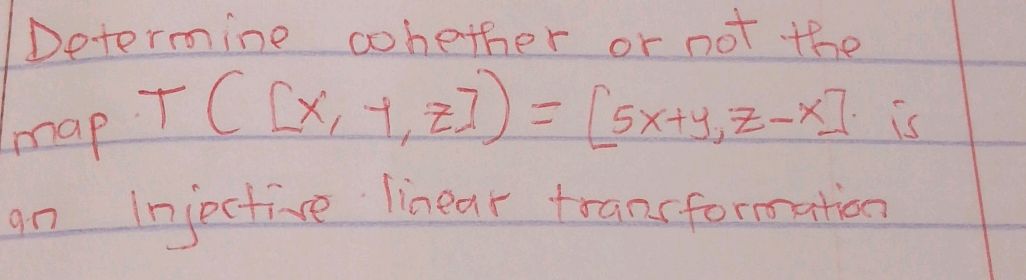 Determine whether or not the
map T([x, y, z]) = [5x+y, z-x]. is
an Injective linear transformation